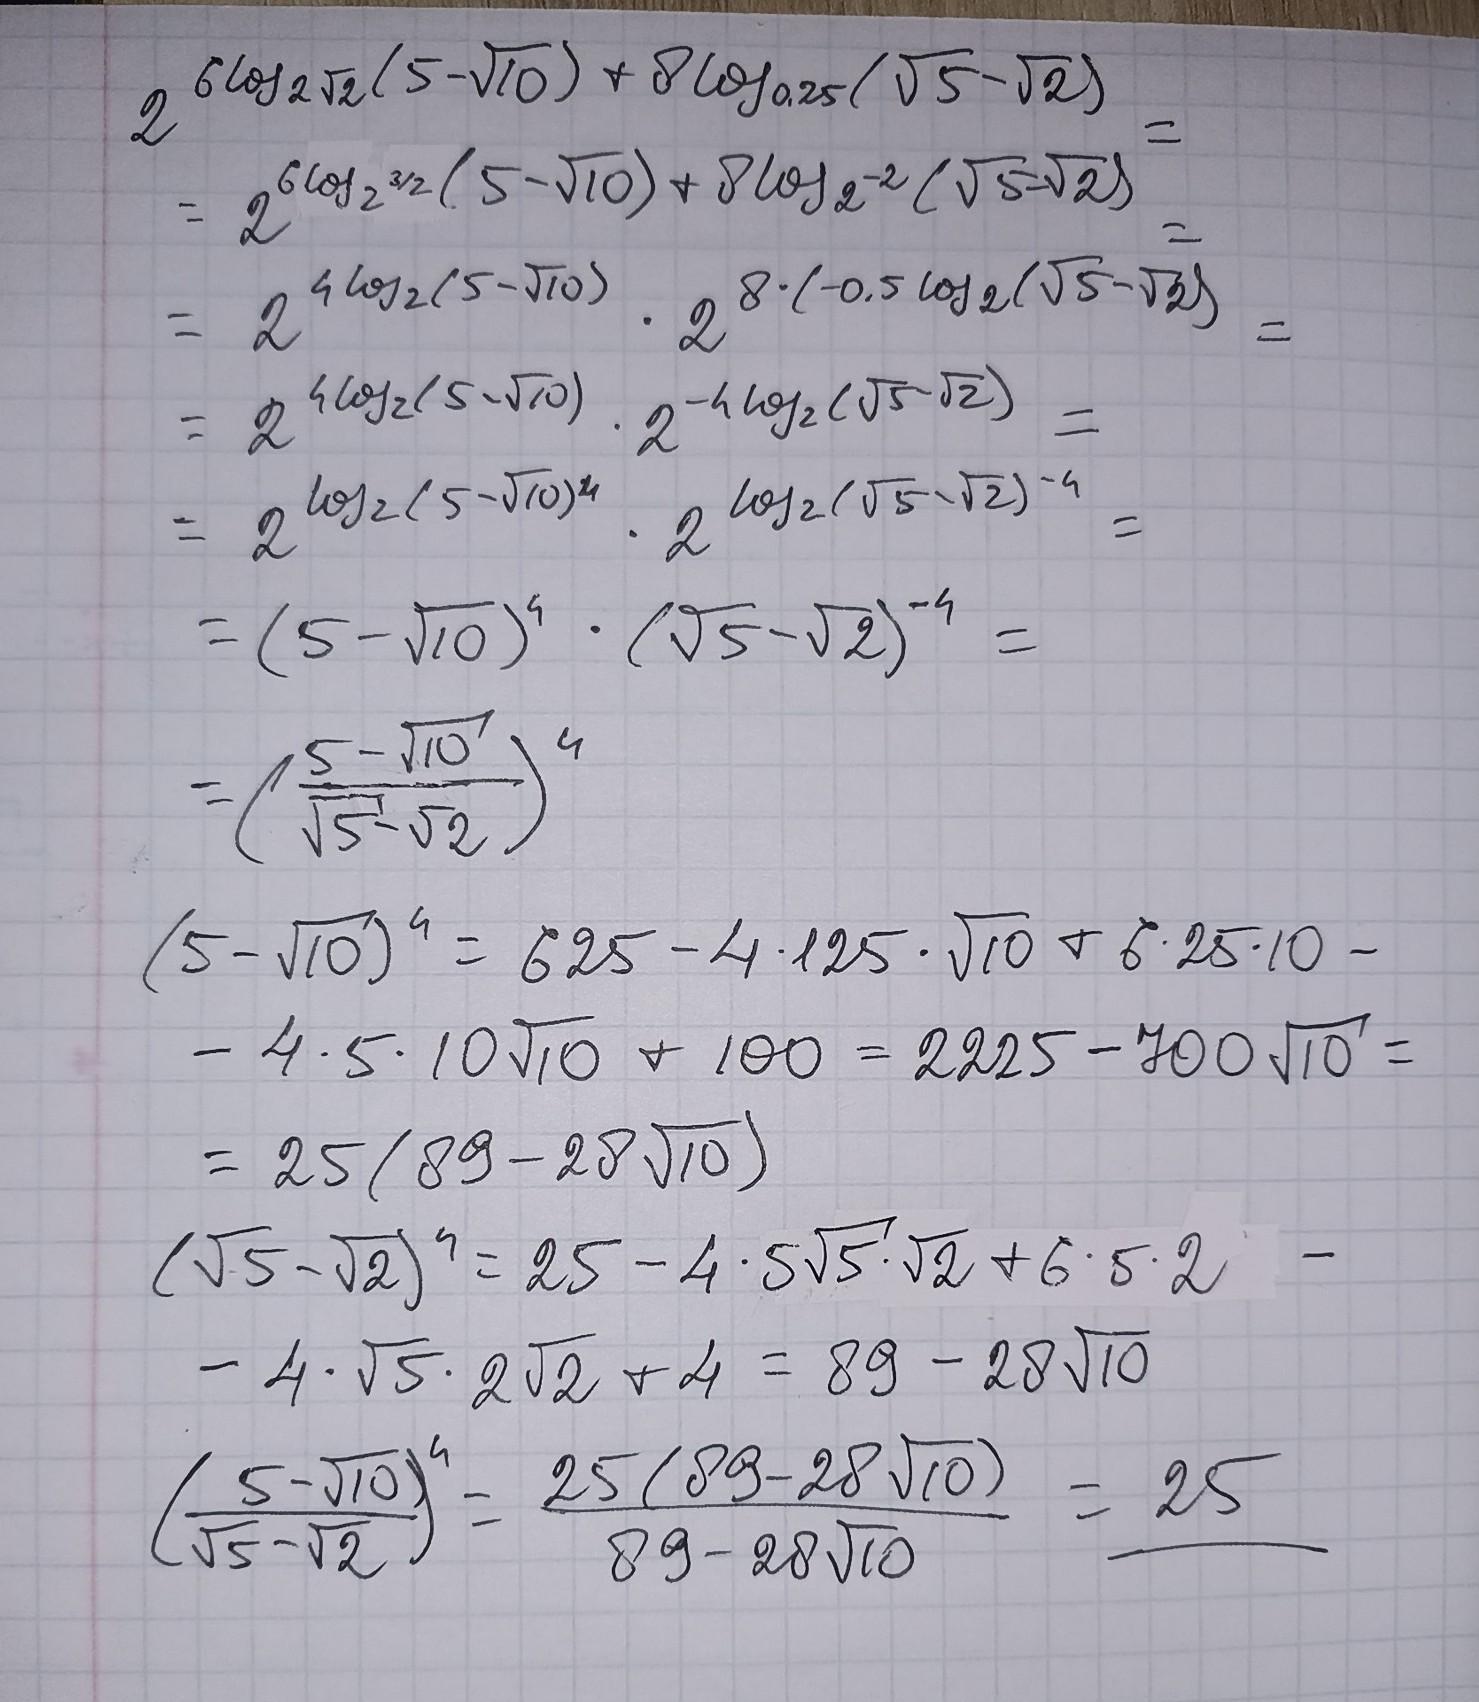 2^{6log_{2√2}(5-√10) + 8log_{0.25}(√5-√2)} =
= 2^{6log_{2^{3/2}}(5-√10) + 8log_{2^{-2}}(√5-√2)} =
= 2^{4log_2(5-√10)} · 2^{8·(-0.5log_2(√5-√2)} =
= 2^{4log_2(5-√10)} · 2^{-4log_2(√5-√2)} =
= 2^{log_2(5-√10)^4} · 2^{log_2(√5-√2)^{-4}} =
= (5-√10)^4 · (√5-√2)^{-4} =
= ((5-√10)/(√5-√2))^4
(5-√10)^4 = 625 - 4·125·√10 + 6·25·10 -
- 4·5·10√10 + 100 = 2225 - 700√10 =
= 25(89-28√10)
(√5-√2)^4 = 25 - 4·5√5·√2 + 6·5·2 -
- 4·√5·2√2 + 4 = 89 - 28√10
((5-√10)/(√5-√2))^4 = 25(89-28√10)/(89-28√10) = 25